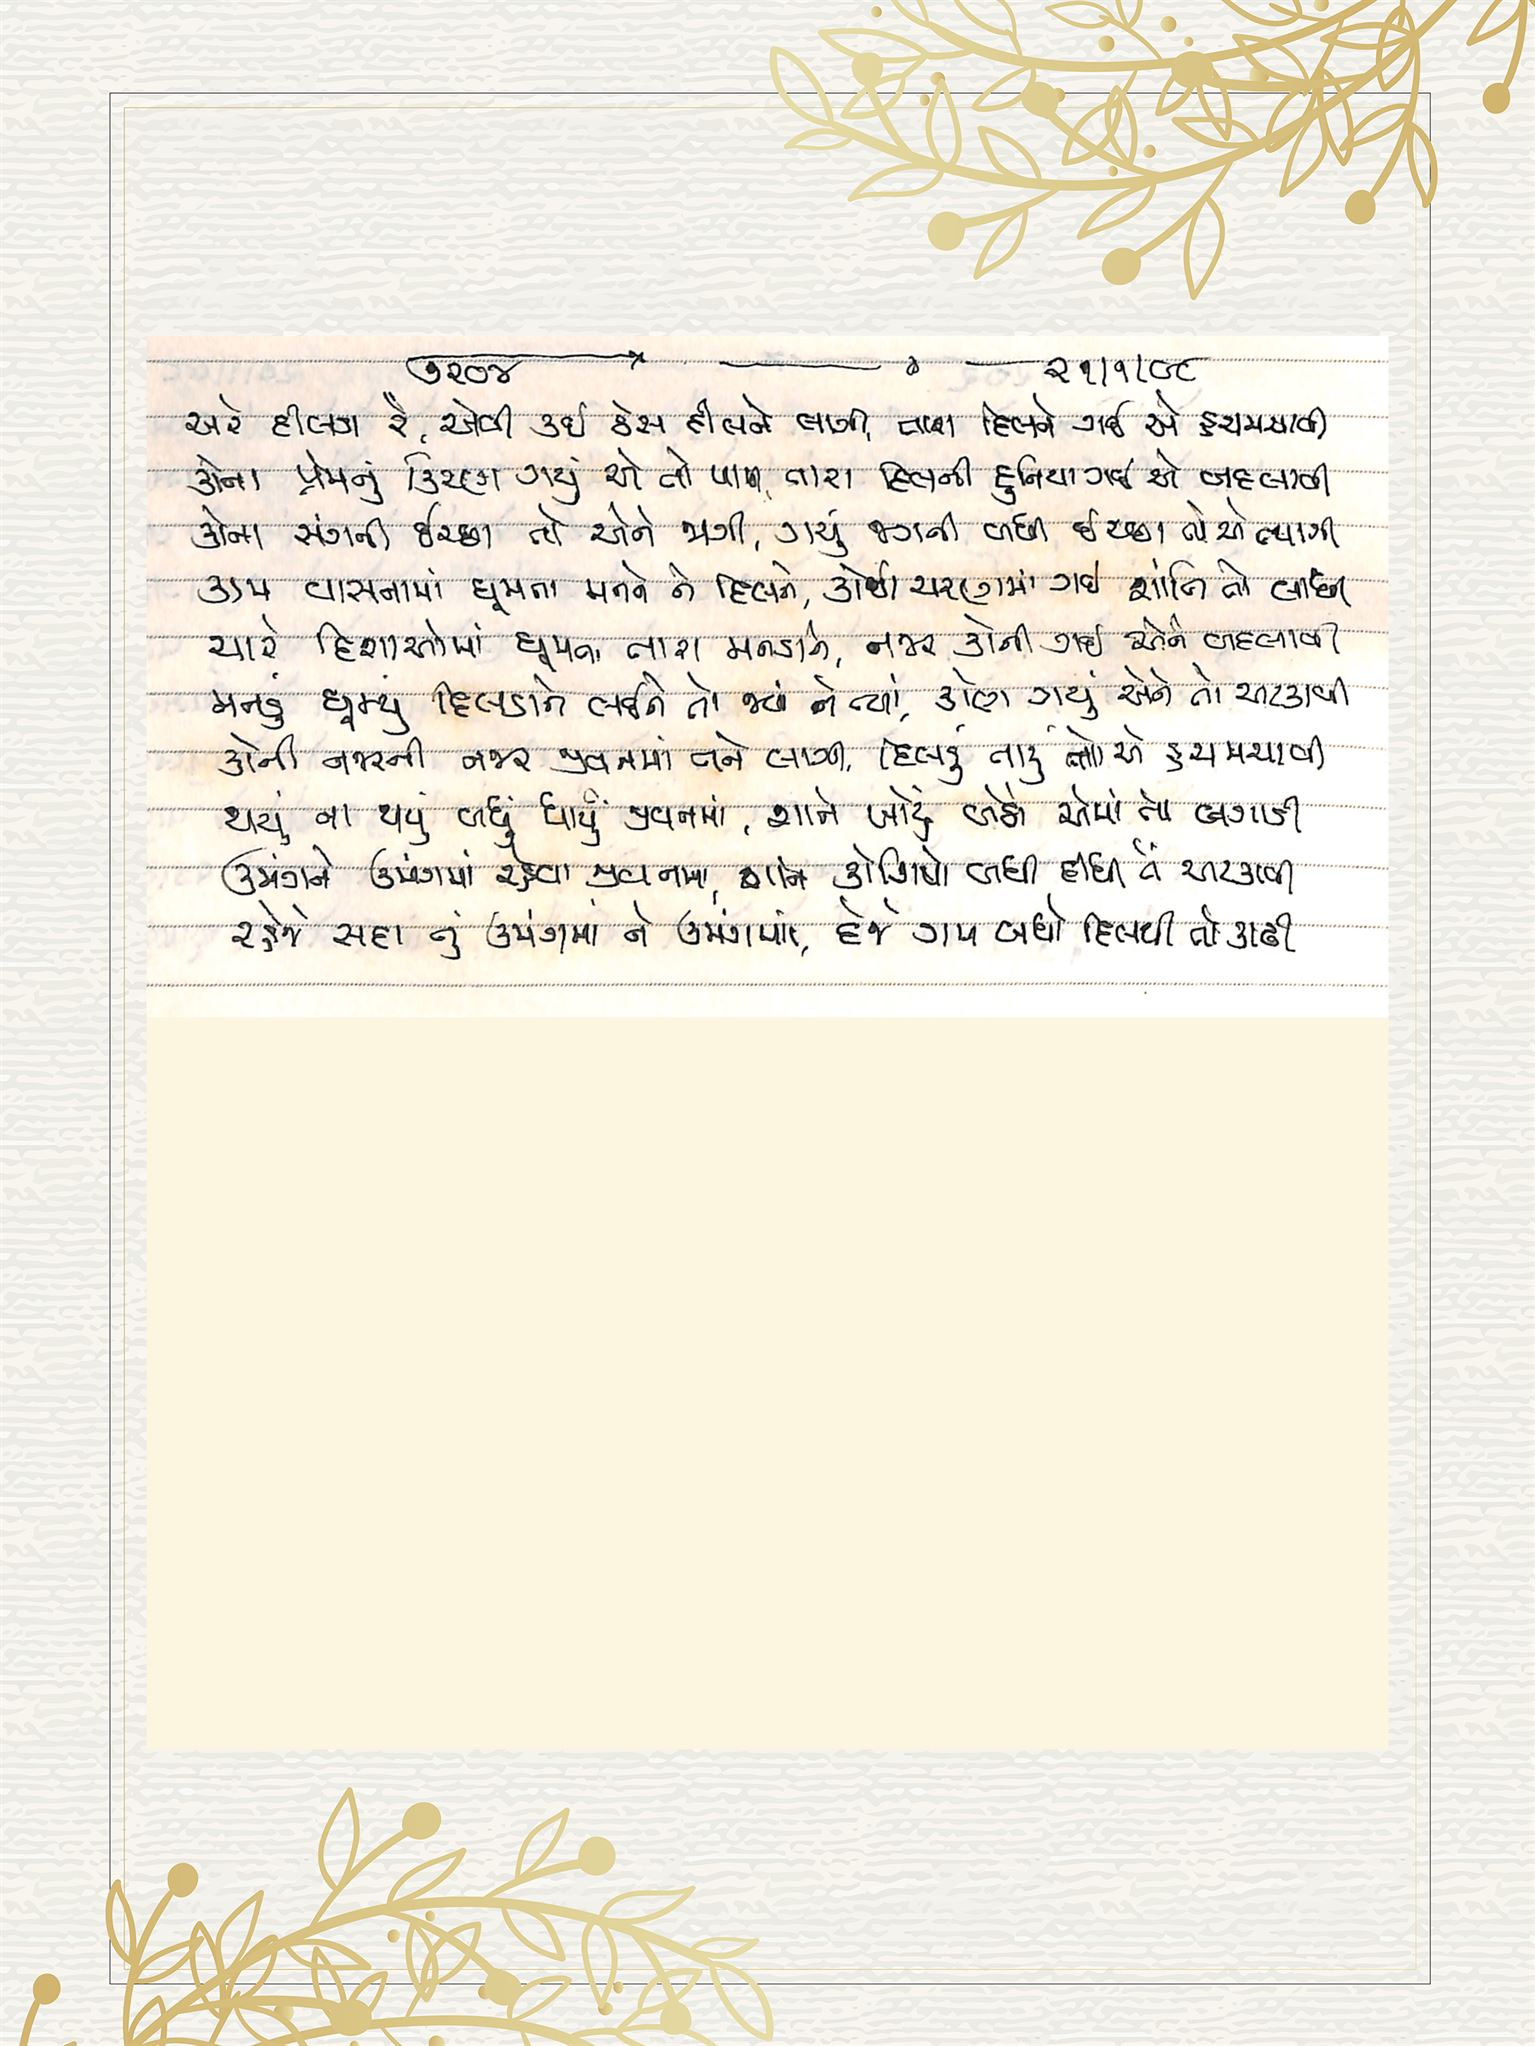 ૭૨૦૪ ૨૧/૧/૯૮
અરે દીલડા રે, એવી કઈ ઠેસ દીલને લાગી, તારા દિલને ગઈ એ હચમચાવી
કોના પ્રેમનું કિરણ ગયું એ તો પામી, તારા દિલની દુનિયા ગઈ એ બદલાવી
કોના સંગની ઈચ્છા તો એને જાગી, ગયું જગની બધી ઈચ્છા તો એ ત્યાગી
કામ વાસનામાં ઘૂમતા મનને ને દિલને, કોઈ ચરણમાં ગઈ શાંતિ તો લાધી
ચારે દિશાઓમાં ઘૂમતા તારા મનડાને, નજર કોની ગઈ એને બદલાવી
મનડું ઘૂમ્યું દિલડાને લઈને તો જ્યાં ને ત્યાં, કોણ ગયું એને તો અટકાવી
કોની નજરની નજર જીવનમાં તને લાગી, દિલડું તારું તો એ હચમચાવી
થયું ના થયું બધું ધાર્યું જીવનમાં, શાને ખોટું બેઠો એમાં તો લગાડી
ઉમંગને ઉમંગમાં રહેવા જીવનમાં, શાને કોશિશો બધી દીધી તેં અટકાવી
રહેજે સદા તું ઉમંગમાં ને ઉમંગમાં, દેજે ગમ બધો દિલથી તો કાઢી